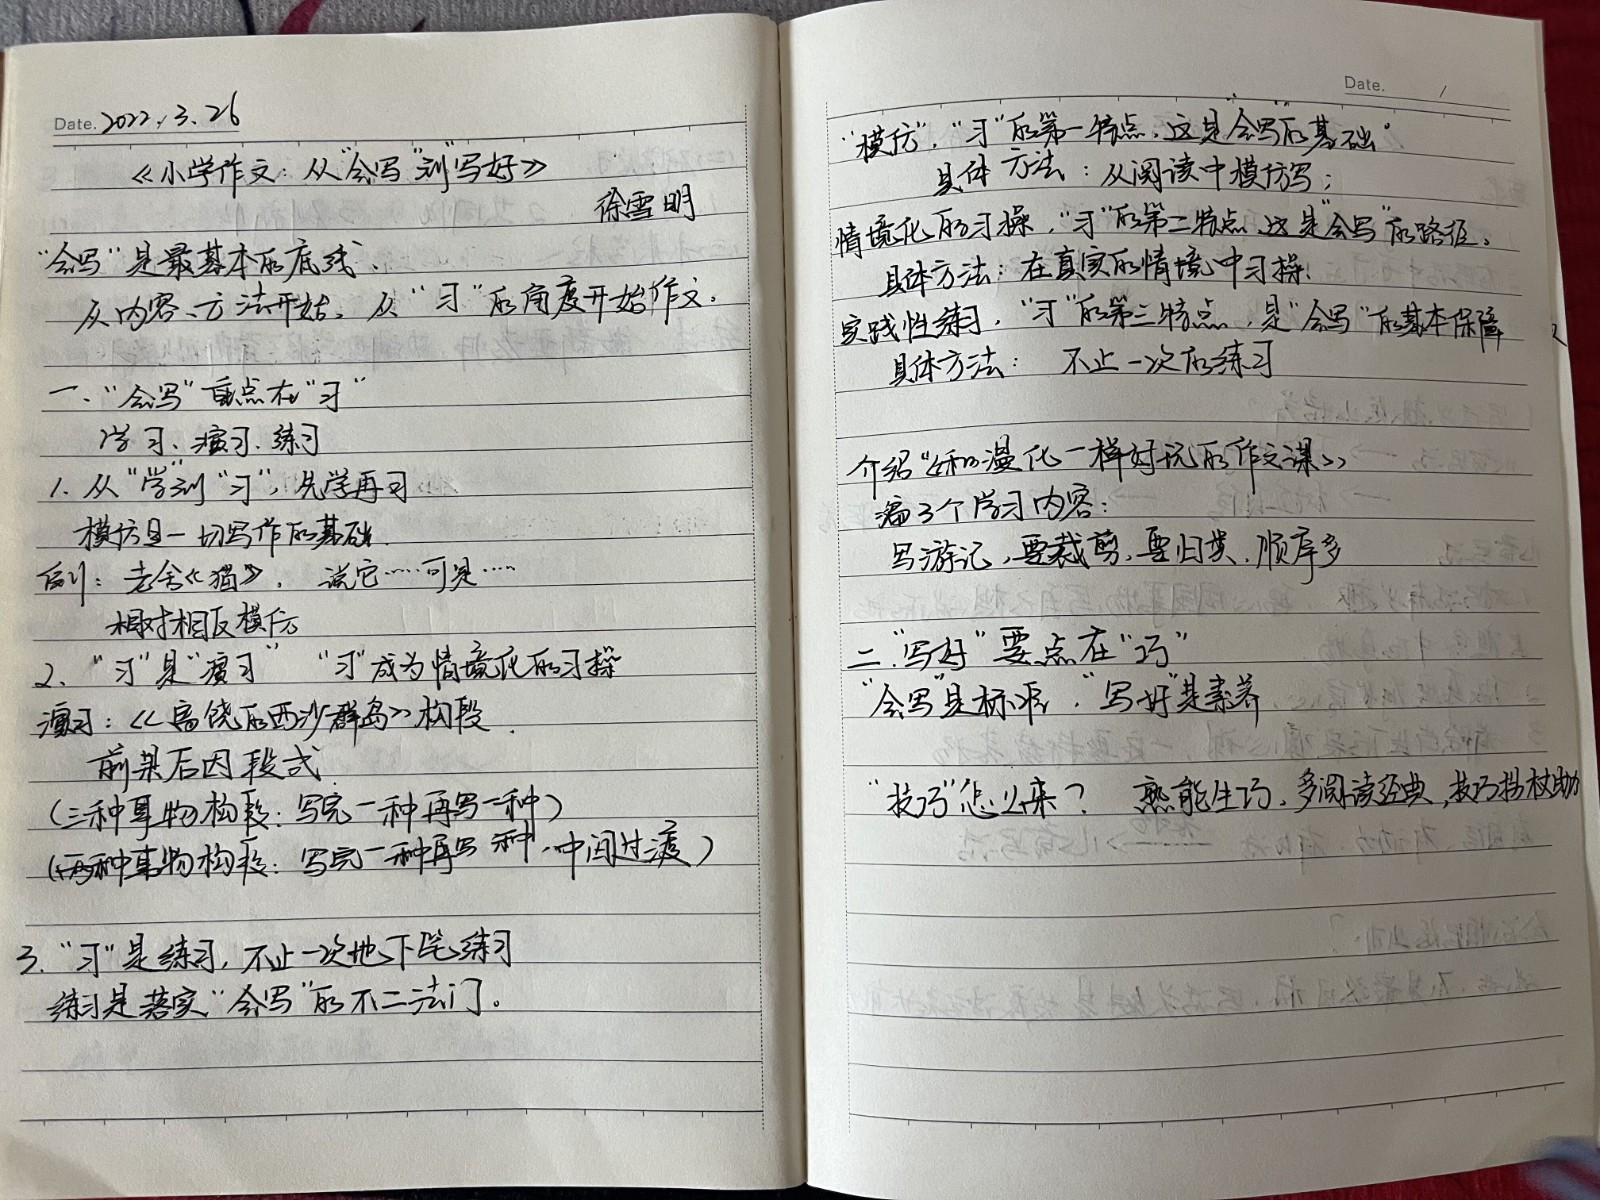 Date. 2022.3.26
《小学作文：从"会写"到"写好》
徐雪明
"会写"是最基本的底线、
从内容、方法开始、从"习"的角度开始作文.
一、"会写"重点在"习"
学习、演习、练习
1. 从"学"到"习"，先学再习
模仿是一切写作的基础.
例：老舍《猫》，说它……可是……
相对相反模仿
2、"习"是"演习" "习"成为情境化的习操
演习：《富饶的西沙群岛》构段.
前果后因段式
(三种事物构段：写完一种再写一种)
(两种事物构段：写完一种再写一种、中间过渡)
3. "习"是练习，不止一次地下笔练习
练习是落实"会写"的不二法门。
Date. /
"模仿"，"习"的第一特点，这是"会写"的基础。
具体方法：从阅读中模仿写；
情境化的习操，"习"的第二特点，这是"会写"的路径。
具体方法：在真实的情境中习操.
实践性练习，"习"的第三特点，是"会写"的基本保障
具体方法： 不止一次的练习
介绍《和漫化一样好玩的作文课》
3个学习内容：
写游记，要裁剪，要归类、顺序多
二、"写好"要点在"巧"
"会写"是标准，"写好"是素养
"技巧"怎么来？ 熟能生巧，多阅读经典，技巧拐杖助